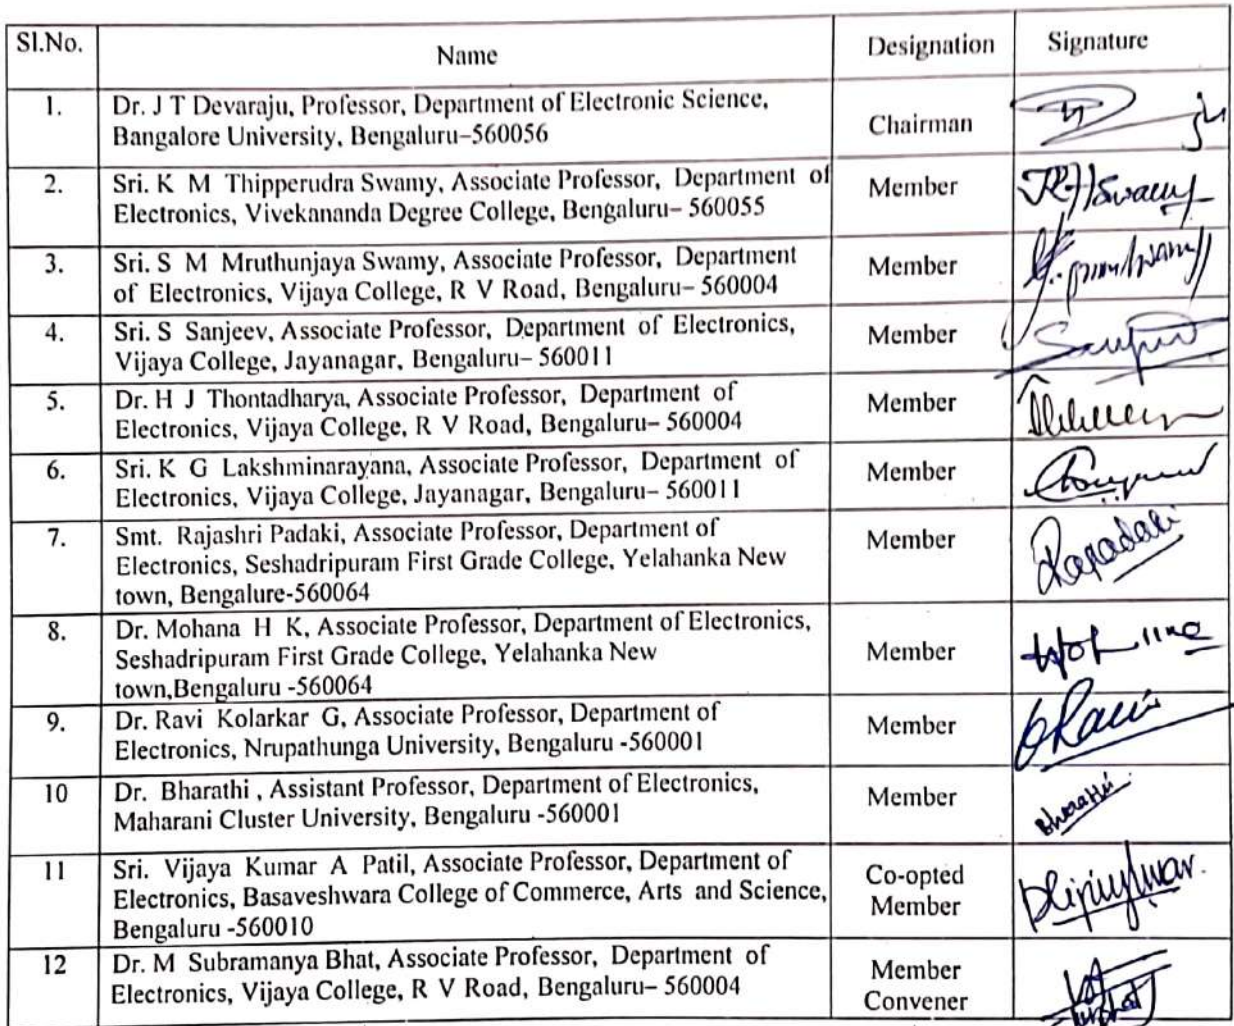 Sl.No. Name Designation Signature
1. Dr. J T Devaraju, Professor, Department of Electronic Science,
Bangalore University, Bengaluru–560056
Chairman
2. Sri. K M Thipperudra Swamy, Associate Professor, Department of
Electronics, Vivekananda Degree College, Bengaluru– 560055
Member
3. Sri. S M Mruthunjaya Swamy, Associate Professor, Department
of Electronics, Vijaya College, R V Road, Bengaluru– 560004
Member
4. Sri. S Sanjeev, Associate Professor, Department of Electronics,
Vijaya College, Jayanagar, Bengaluru– 560011
Member
5. Dr. H J Thontadharya, Associate Professor, Department of
Electronics, Vijaya College, R V Road, Bengaluru– 560004
Member
6. Sri. K G Lakshminarayana, Associate Professor, Department of
Electronics, Vijaya College, Jayanagar, Bengaluru– 560011
Member
7. Smt. Rajashri Padaki, Associate Professor, Department of
Electronics, Seshadripuram First Grade College, Yelahanka New
town, Bengalure-560064
Member
8. Dr. Mohana H K, Associate Professor, Department of Electronics,
Seshadripuram First Grade College, Yelahanka New
town,Bengaluru -560064
Member
9. Dr. Ravi Kolarkar G, Associate Professor, Department of
Electronics, Nrupathunga University, Bengaluru -560001
Member
10 Dr. Bharathi , Assistant Professor, Department of Electronics,
Maharani Cluster University, Bengaluru -560001
Member
Bharathi
11 Sri. Vijaya Kumar A Patil, Associate Professor, Department of
Electronics, Basaveshwara College of Commerce, Arts and Science,
Bengaluru -560010
Co-opted
Member
12 Dr. M Subramanya Bhat, Associate Professor, Department of
Electronics, Vijaya College, R V Road, Bengaluru– 560004
Member
Convener